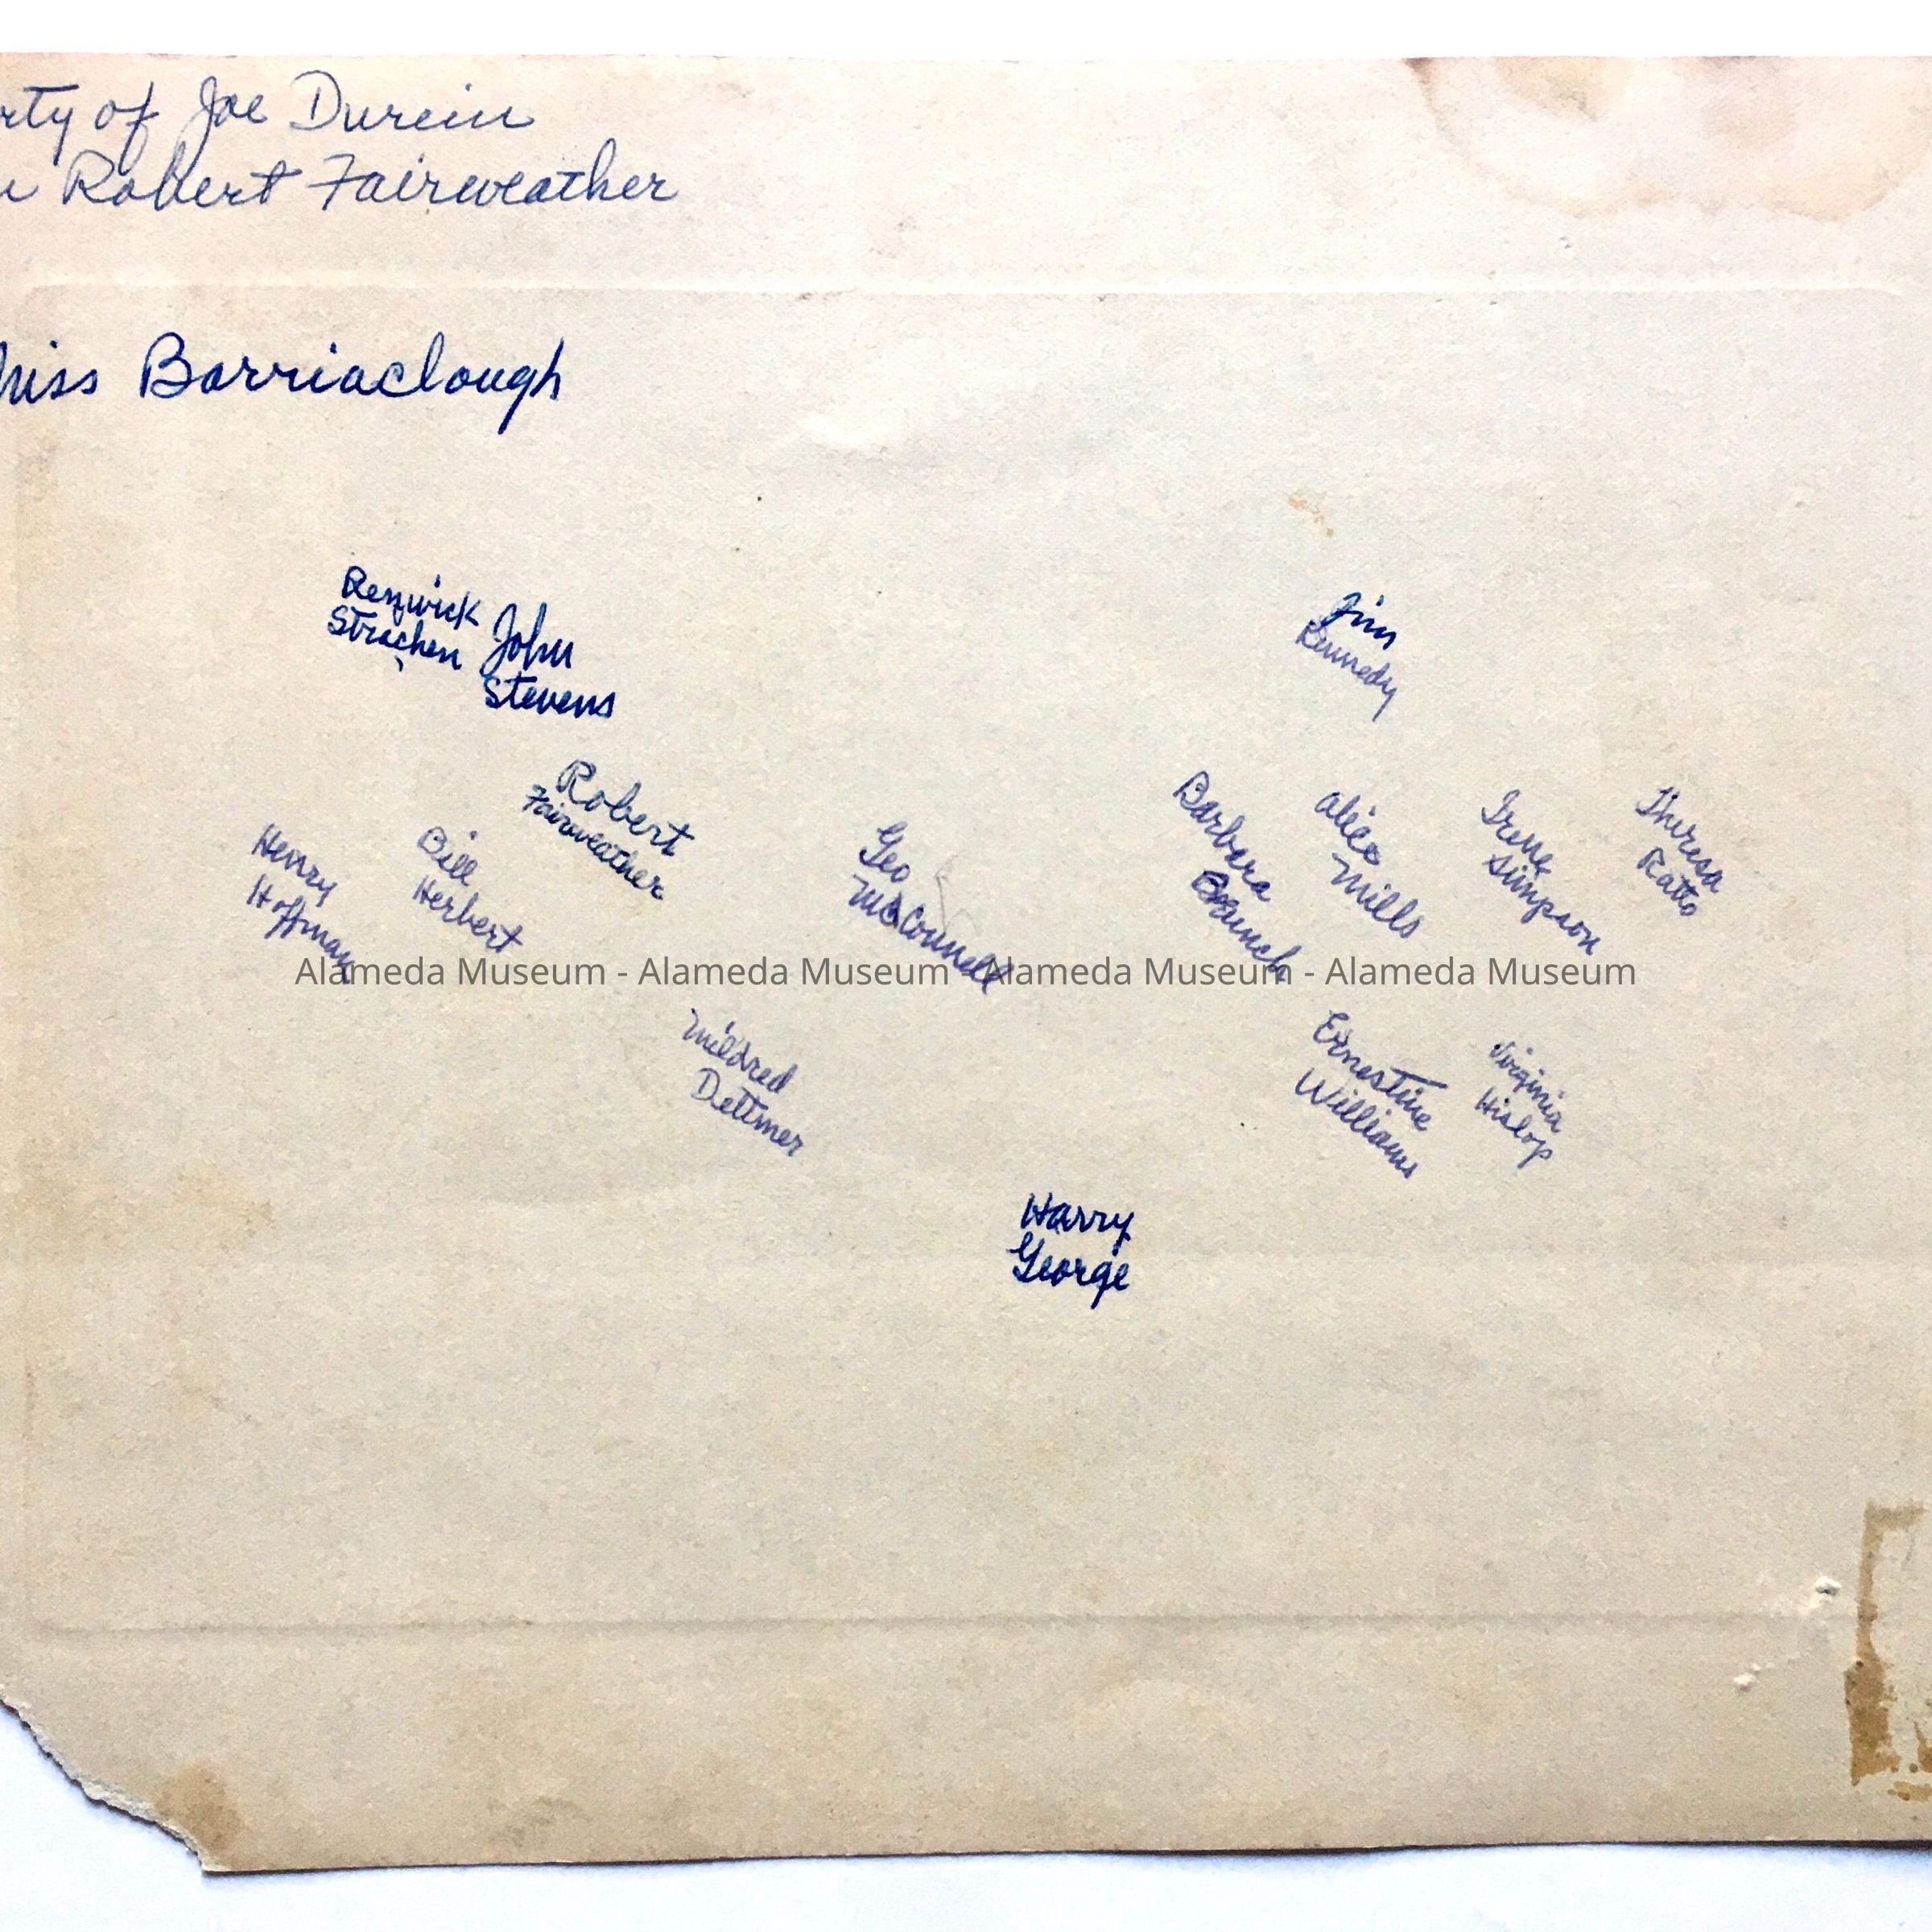 of Joe Durein
Robert Fairweather
Miss Barriaclough
Renwick
Strachen
John
Stevens
Jim
Kennedy
Robert
Fairweather
Henry
Hoffman
Bill
Herbert
Geo
McConnell
Barbara
Branch
Alice
Mills
Irene
Simpson
Theresa
Ratto
Alameda Museum - Alameda Museum - Alameda Museum - Alameda Museum
Mildred
Dettmer
Ernestine
Williams
Virginia
Hislop
Harry
George